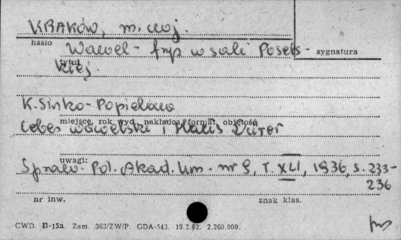 KRAKÓW, m. woj.
hasło
Wawel - fryz w sali Posels-
sygnatura
kiej
tytuł
K. Sinko-Popielowa
miejsce, rok wyd. nakładca, format, objętość
Cebes wawelski i Hans Dürer
uwagi:
Spraw. Pol. Akad. Um. nr 9, T. XLI, 1936, s. 233-
236
nr inw.
znak klas.
CWD. B-15a. Zam. 363/ZW/P. GDA-543. 19.2.62. 2.260.000.